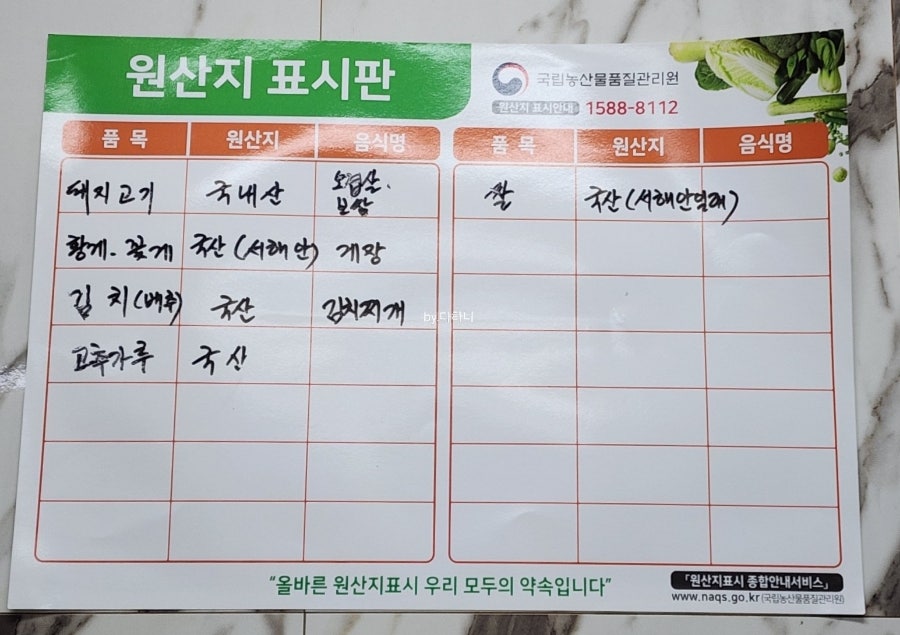 원산지 표시판
국립농산물품질관리원
원산지 표시안내 1588-8112
품 목 원산지 음식명
돼지고기 국내산 오겹살.
보쌈
황게. 꽃게 국산(서해안) 게장
김치(배추) 국산 김치찌개
고추가루 국산
품 목 원산지 음식명
쌀 국산(서해안일대)
by.다하니
"올바른 원산지표시 우리 모두의 약속입니다"
「원산지표시 종합안내서비스」
www.naqs.go.kr(국립농산물품질관리원)